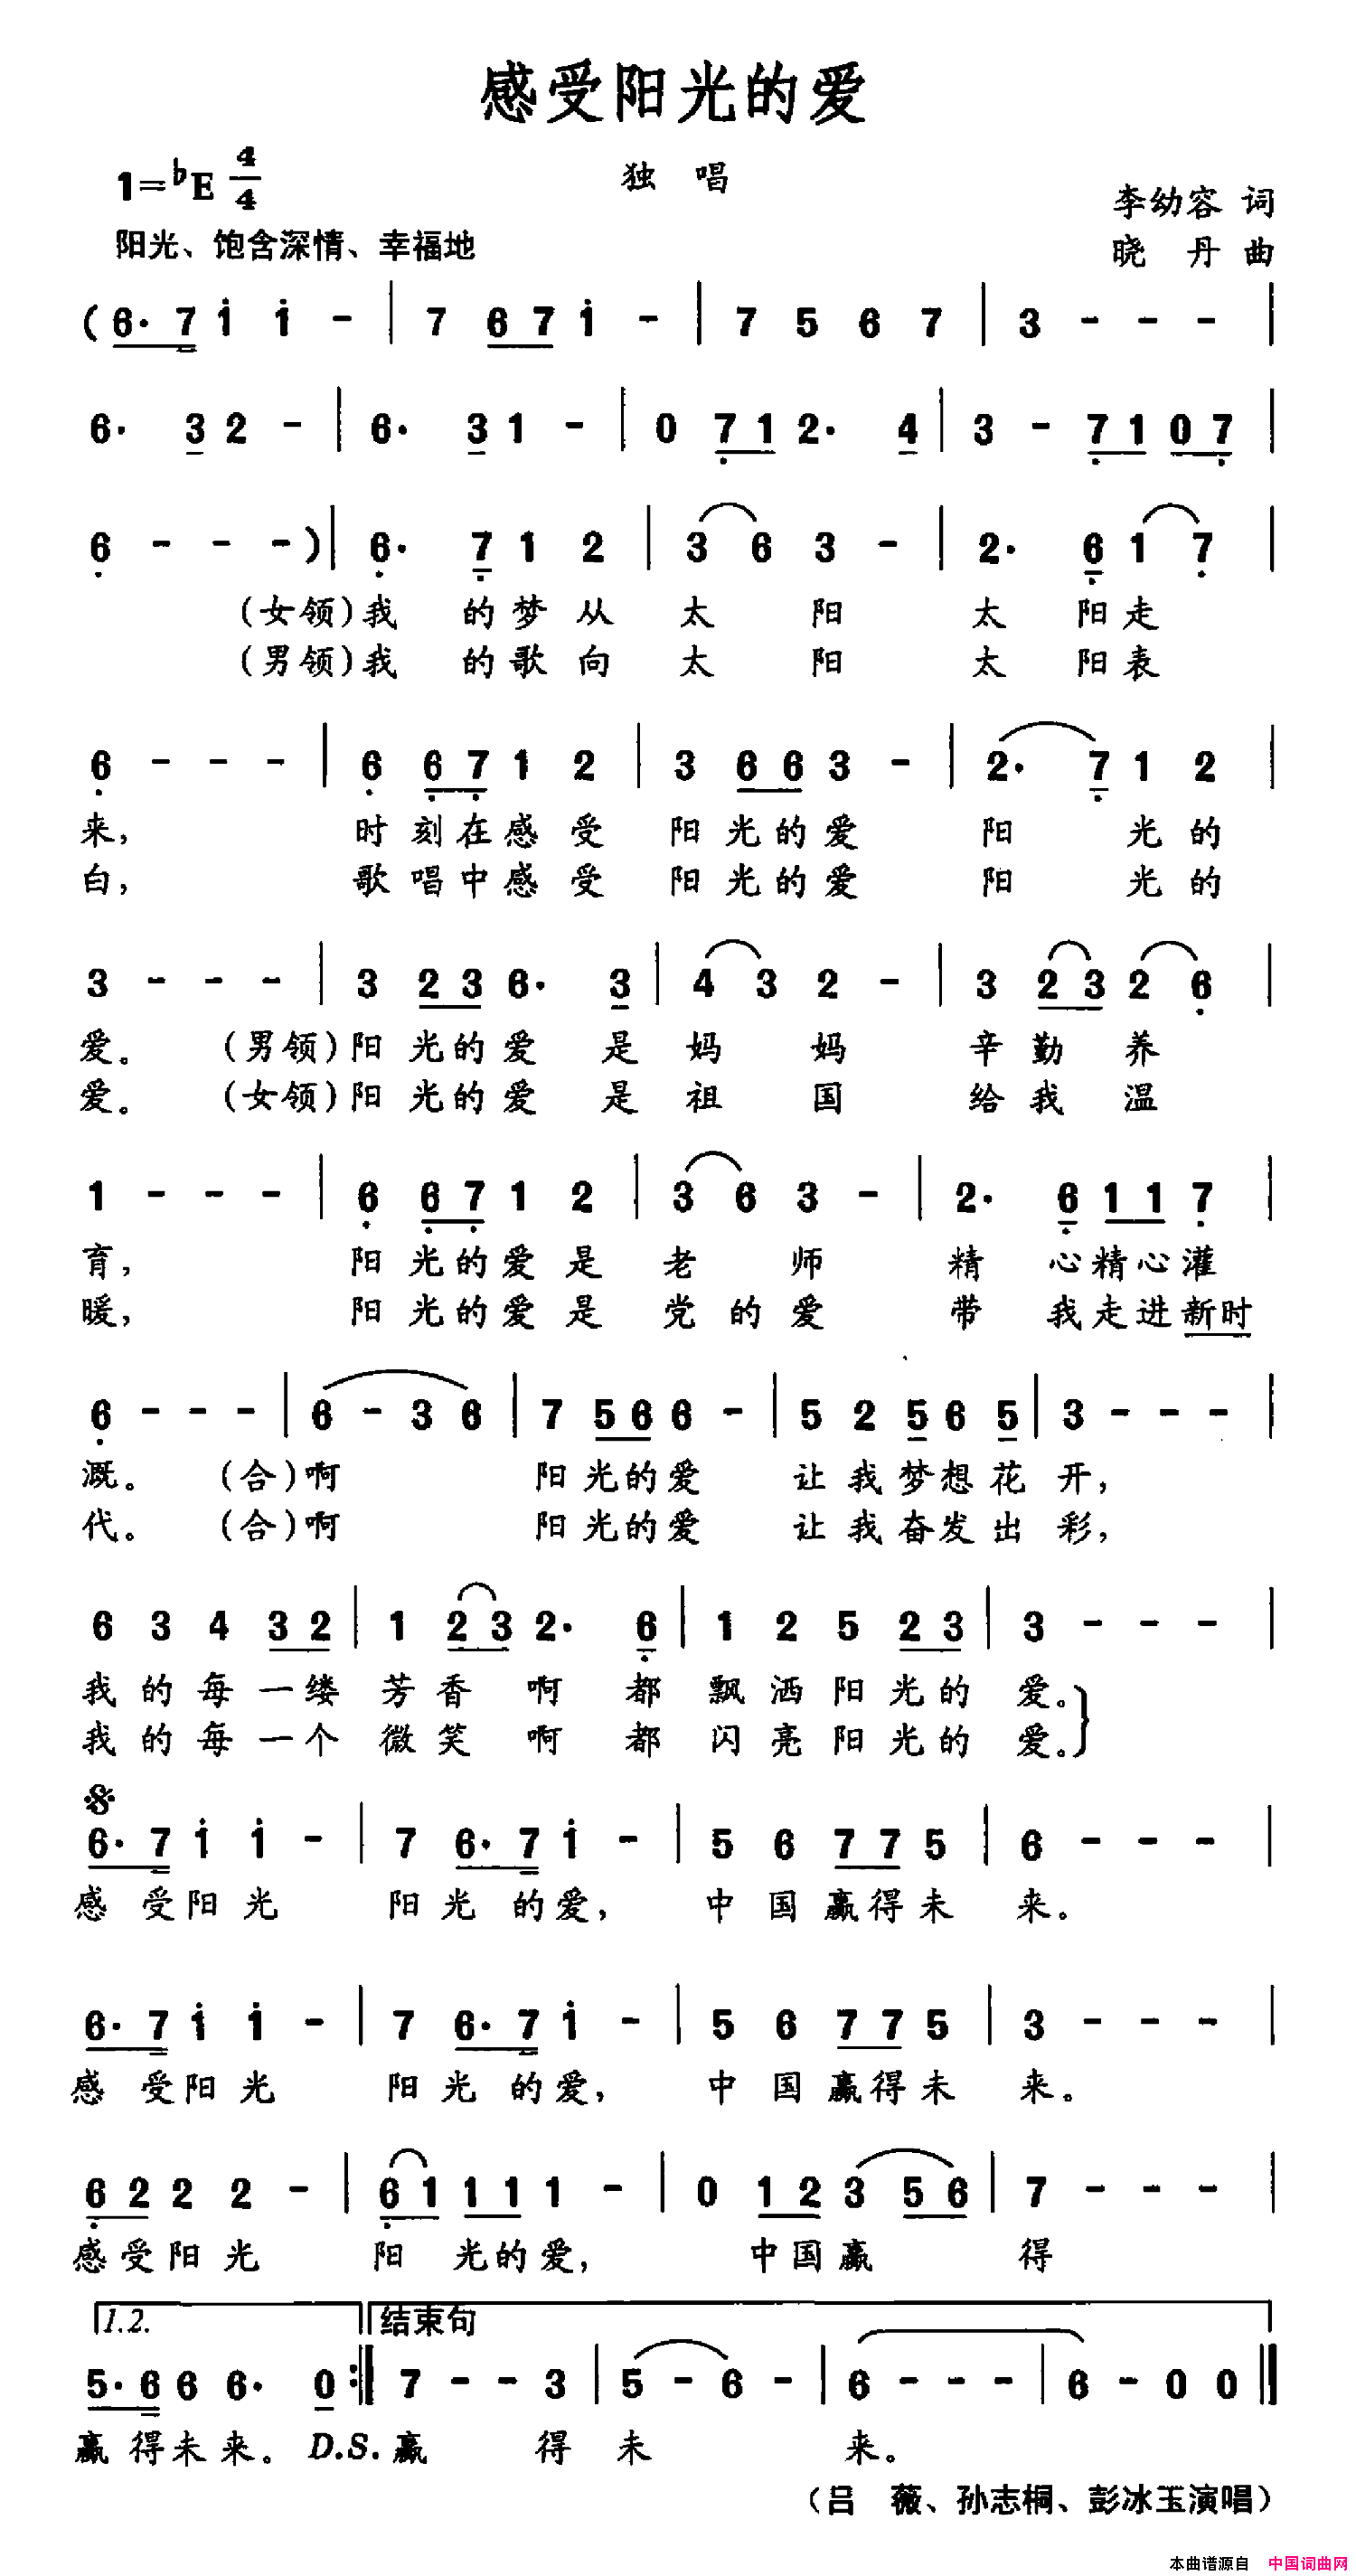 感受阳光的爱
1=♭E 4/4
独 唱
李幼容 词
阳光、饱含深情、幸福地
晓 丹 曲
(6· 7 i i - | 7 6 7 i - | 7 5 6 7 | 3 - - - |
6· 3 2 - | 6· 3 1 - | 0 7 1 2· 4 | 3 - 7 1 0 7 |
6 - - -) | 6· 7 1 2 | 3 6 3 - | 2· 6 1 7 |
(女领)我 的 梦 从 太 阳 太 阳 走
(男领)我 的 歌 向 太 阳 太 阳 表
6 - - - | 6 6 7 1 2 | 3 6 6 3 - | 2· 7 1 2 |
来, 时 刻 在 感 受 阳 光 的 爱 阳 光 的
白, 歌 唱 中 感 受 阳 光 的 爱 阳 光 的
3 - - - | 3 2 3 6· 3 | 4 3 2 - | 3 2 3 2 6 |
爱。 (男领)阳 光 的 爱 是 妈 妈 辛 勤 养
爱。 (女领)阳 光 的 爱 是 祖 国 给 我 温
1 - - - | 6 6 7 1 2 | 3 6 3 - | 2· 6 1 1 7 |
育, 阳 光 的 爱 是 老 师 精 心 精 心 灌
暖, 阳 光 的 爱 是 党 的 爱 带 我 走 进 新时
6 - - - | 6 - 3 6 | 7 5 6 6 - | 5 2 5 6 5 | 3 - - - |
溉。 (合)啊 阳 光 的 爱 让 我 梦 想 花 开,
代。 (合)啊 阳 光 的 爱 让 我 奋 发 出 彩,
6 3 4 3 2 | 1 2 3 2· 6 | 1 2 5 2 3 | 3 - - - |
我 的 每 一 缕 芳 香 啊 都 飘 洒 阳 光 的 爱。
我 的 每 一 个 微 笑 啊 都 闪 亮 阳 光 的 爱。
6· 7 i i - | 7 6· 7 i - | 5 6 7 7 5 | 6 - - - |
感 受 阳 光 阳 光 的 爱, 中 国 赢 得 未 来。
6· 7 i i - | 7 6· 7 i - | 5 6 7 7 5 | 3 - - - |
感 受 阳 光 阳 光 的 爱, 中 国 赢 得 未 来。
6 2 2 2 - | 6 1 1 1 1 - | 0 1 2 3 5 6 | 7 - - - |
感 受 阳 光 阳 光 的 爱, 中 国 赢 得
1.2. 结束句
5· 6 6 6· 0 :| 7 - - 3 | 5 - 6 - | 6 - - - | 6 - 0 0 ‖
赢 得 未 来。 D.S. 赢 得 未 来。
(吕 薇、孙志桐、彭冰玉演唱)
本曲谱源自 中国词曲网